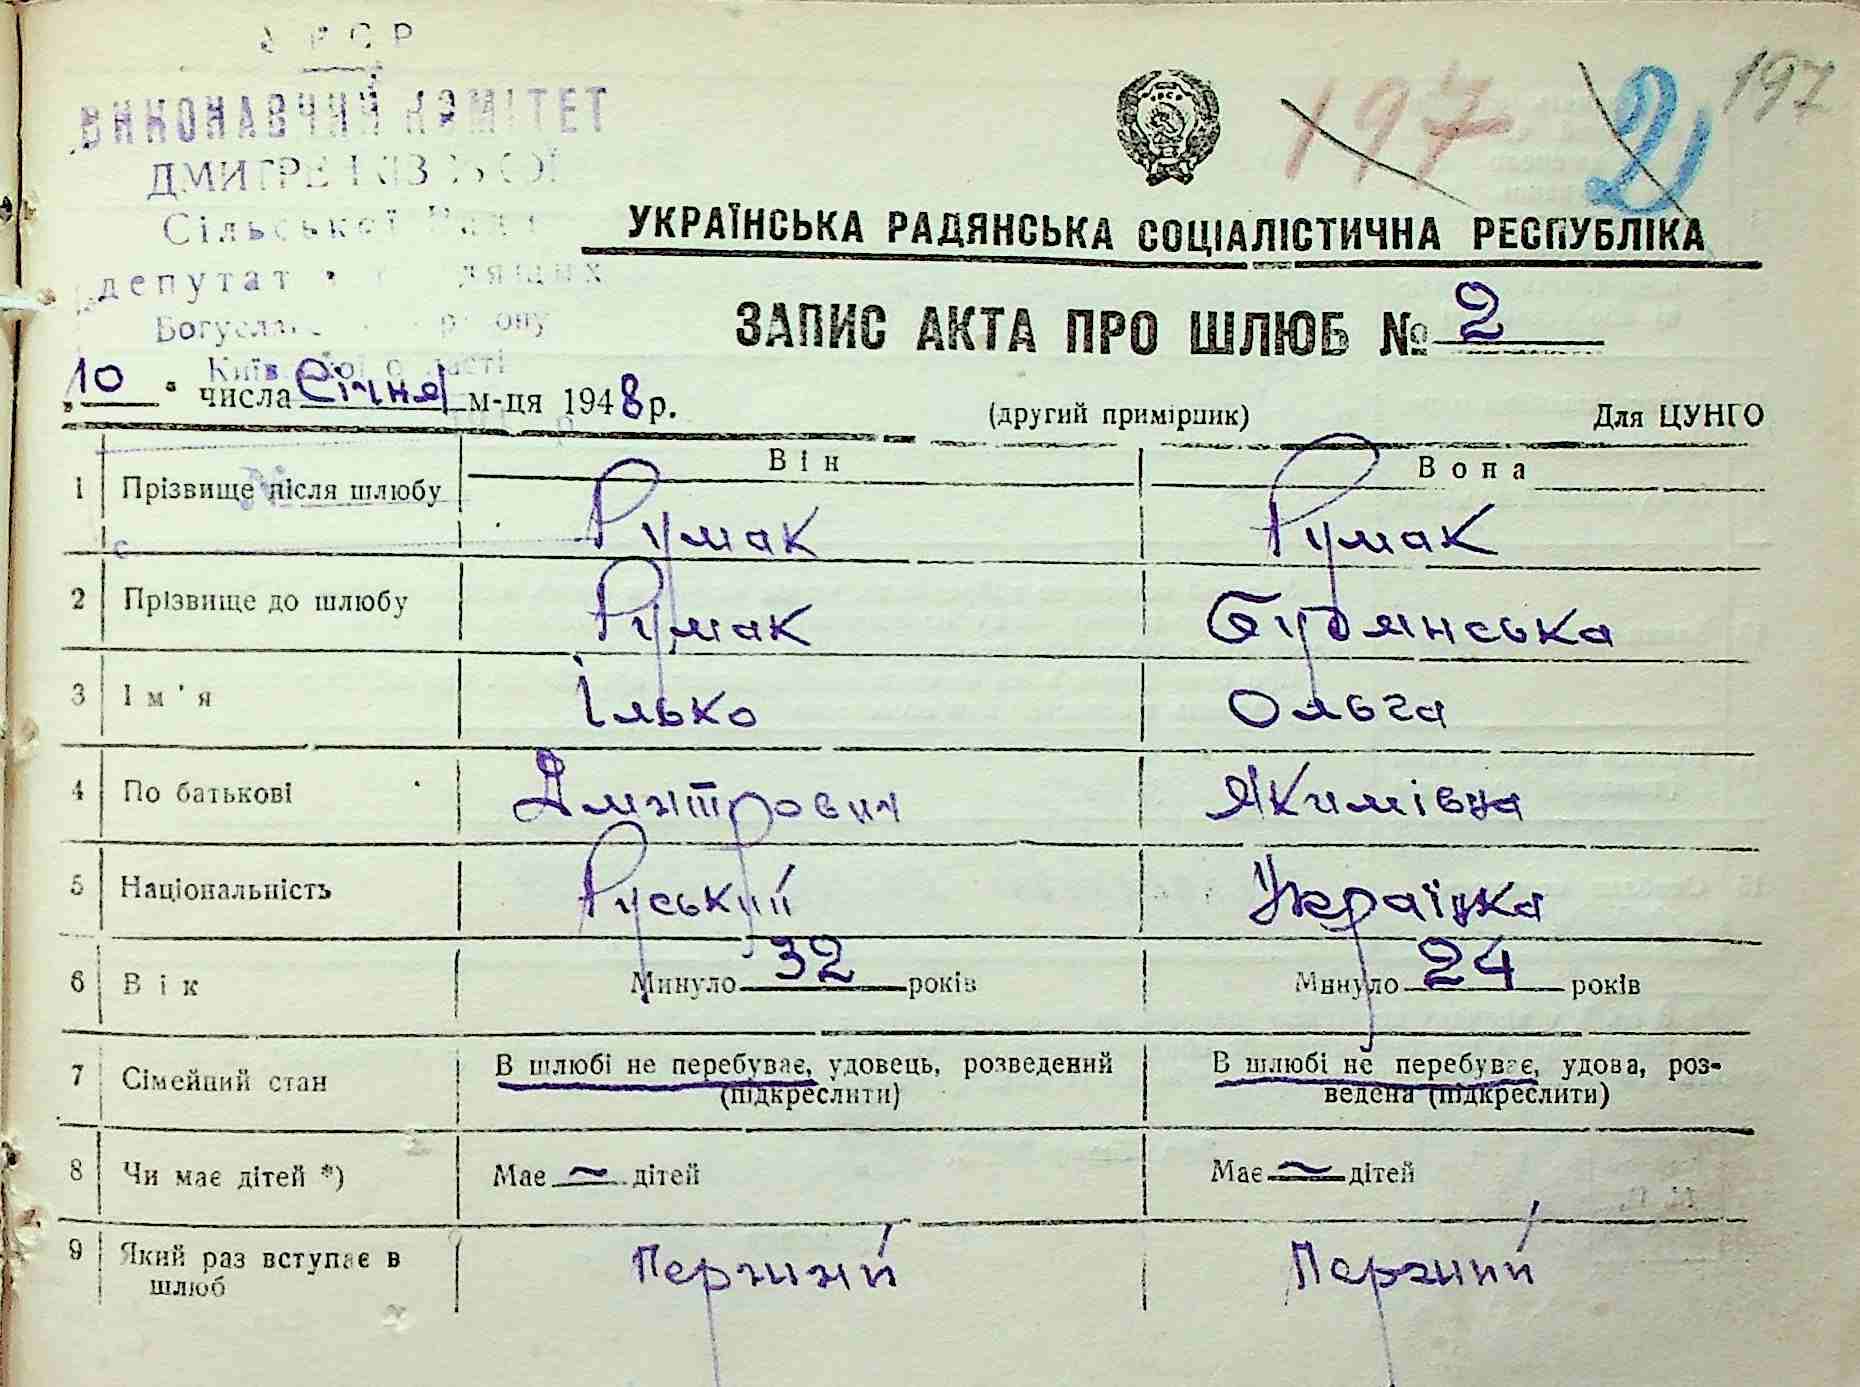 УРСР
ВИКОНАВЧИЙ КОМІТЕТ
Сільської Ради
депутатів трудящих
Богуславського району
Київської області
197 2 197
УКРАЇНСЬКА РАДЯНСЬКА СОЦІАЛІСТИЧНА РЕСПУБЛІКА
ЗАПИС АКТА ПРО ШЛЮБ № 2
„10" числа Січня м-ця 1948 р. (другий примірник) Для ЦУНГО
Він Вона
1 Прізвище після шлюбу Румак Румак
2 Прізвище до шлюбу Румак Будянська
3 Ім'я Ілько Ольга
4 По батькові Дмитрович Якимівна
5 Національність Руський Українка
6 Вік Минуло 32 років Минуло 24 років
7 Сімейний стан В шлюбі не перебуває, удовець, розведений (підкреслити) В шлюбі не перебуває, удова, роз-
ведена (підкреслити)
8 Чи має дітей *) Має ~ дітей Має ~ дітей
9 Який раз вступає в Перший Перший
шлюб